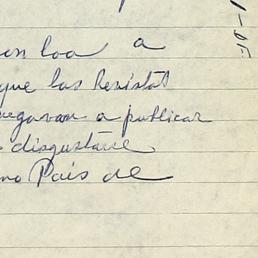 en loa a
que las Revistas
negavan a publicar
disgustarse
no País de